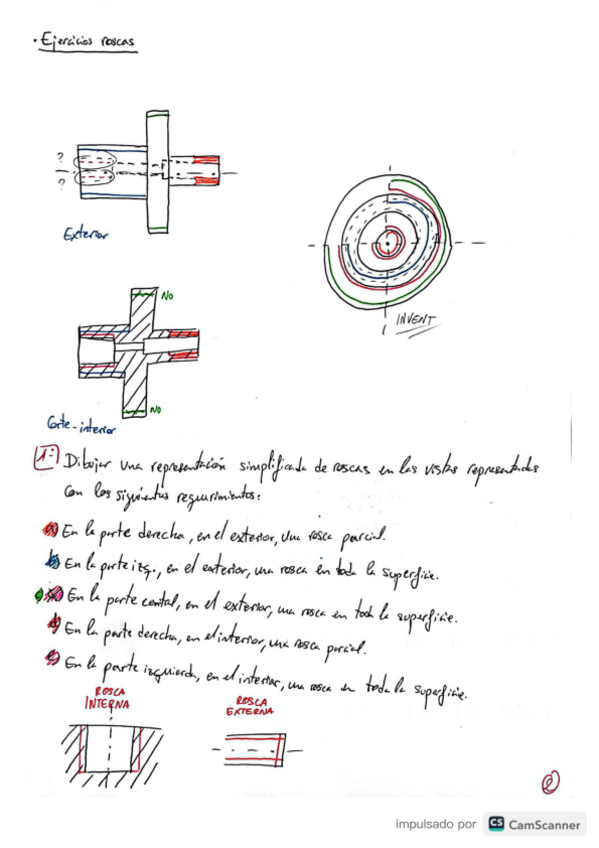 · Ejercicios roscas
?
?
Exterior
INVENT
NO
NO
Corte-interior
1: Dibujar una representación simplificada de roscas en las vistas representadas
con los siguientes requerimientos:
a) En la parte derecha, en el exterior, una rosca parcial.
b) En la parte izq., en el exterior, una rosca en toda la superficie.
En la parte central, en el exterior, una rosca en toda la superficie.
d) En la parte derecha, en el interior, una rosca parcial.
e) En la parte izquierda, en el interior, una rosca en toda la superficie.
ROSCA
INTERNA
ROSCA
EXTERNA
2
impulsado por CS CamScanner